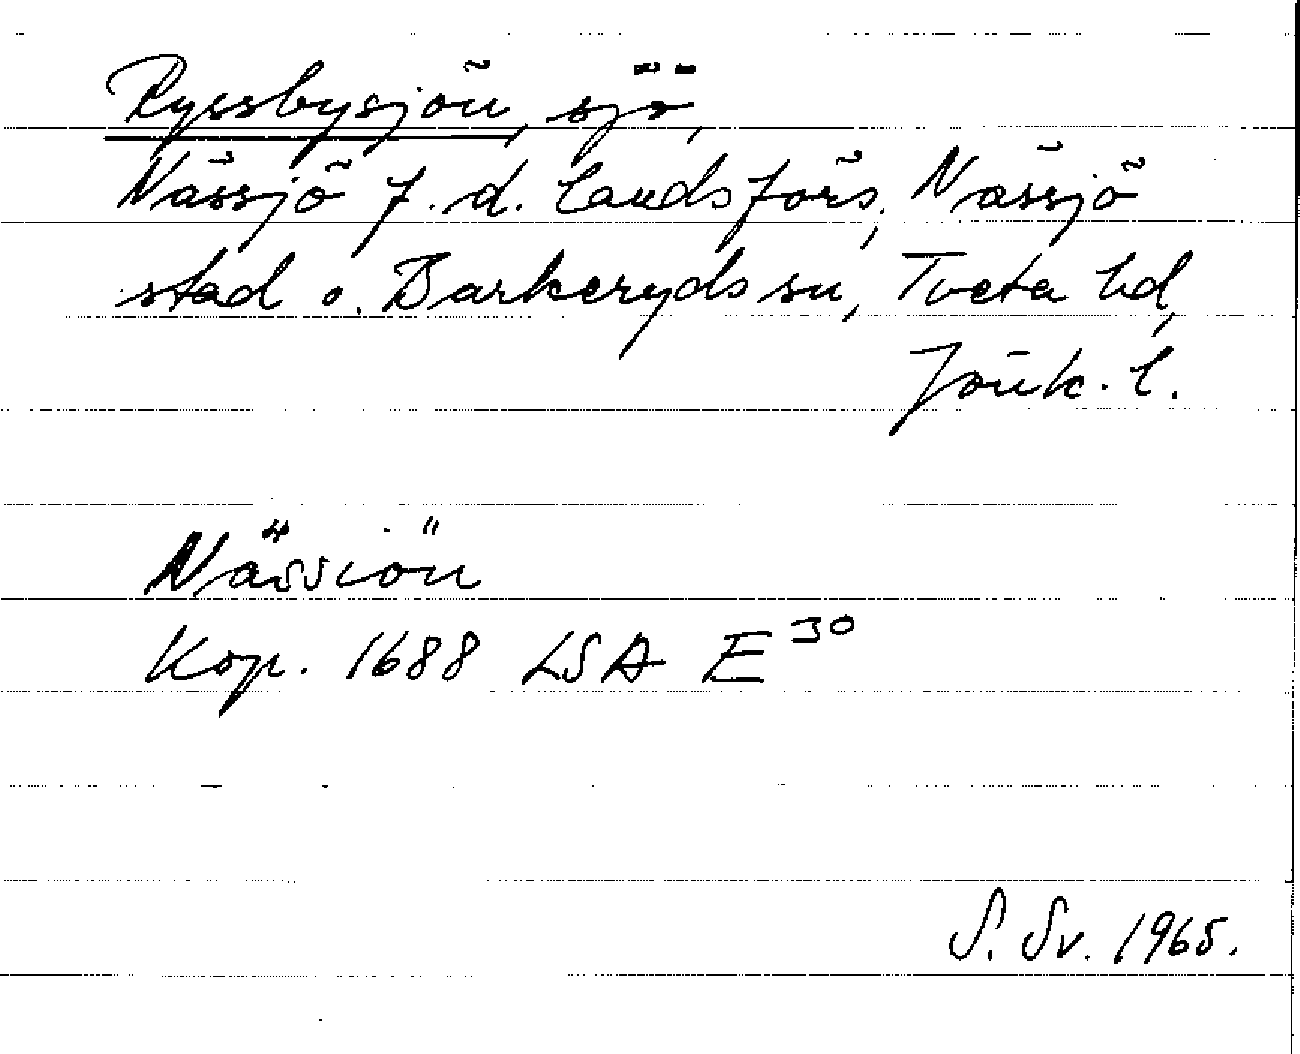 Ryssbysjön, sjö,
Nässjö f.d. landsförs., Nässjö
stad o. Barkeryds sn, Tveta hd,
Jönk. l.
Nässiön
Kop. 1688 LSA E 30
S. Sv. 1965.